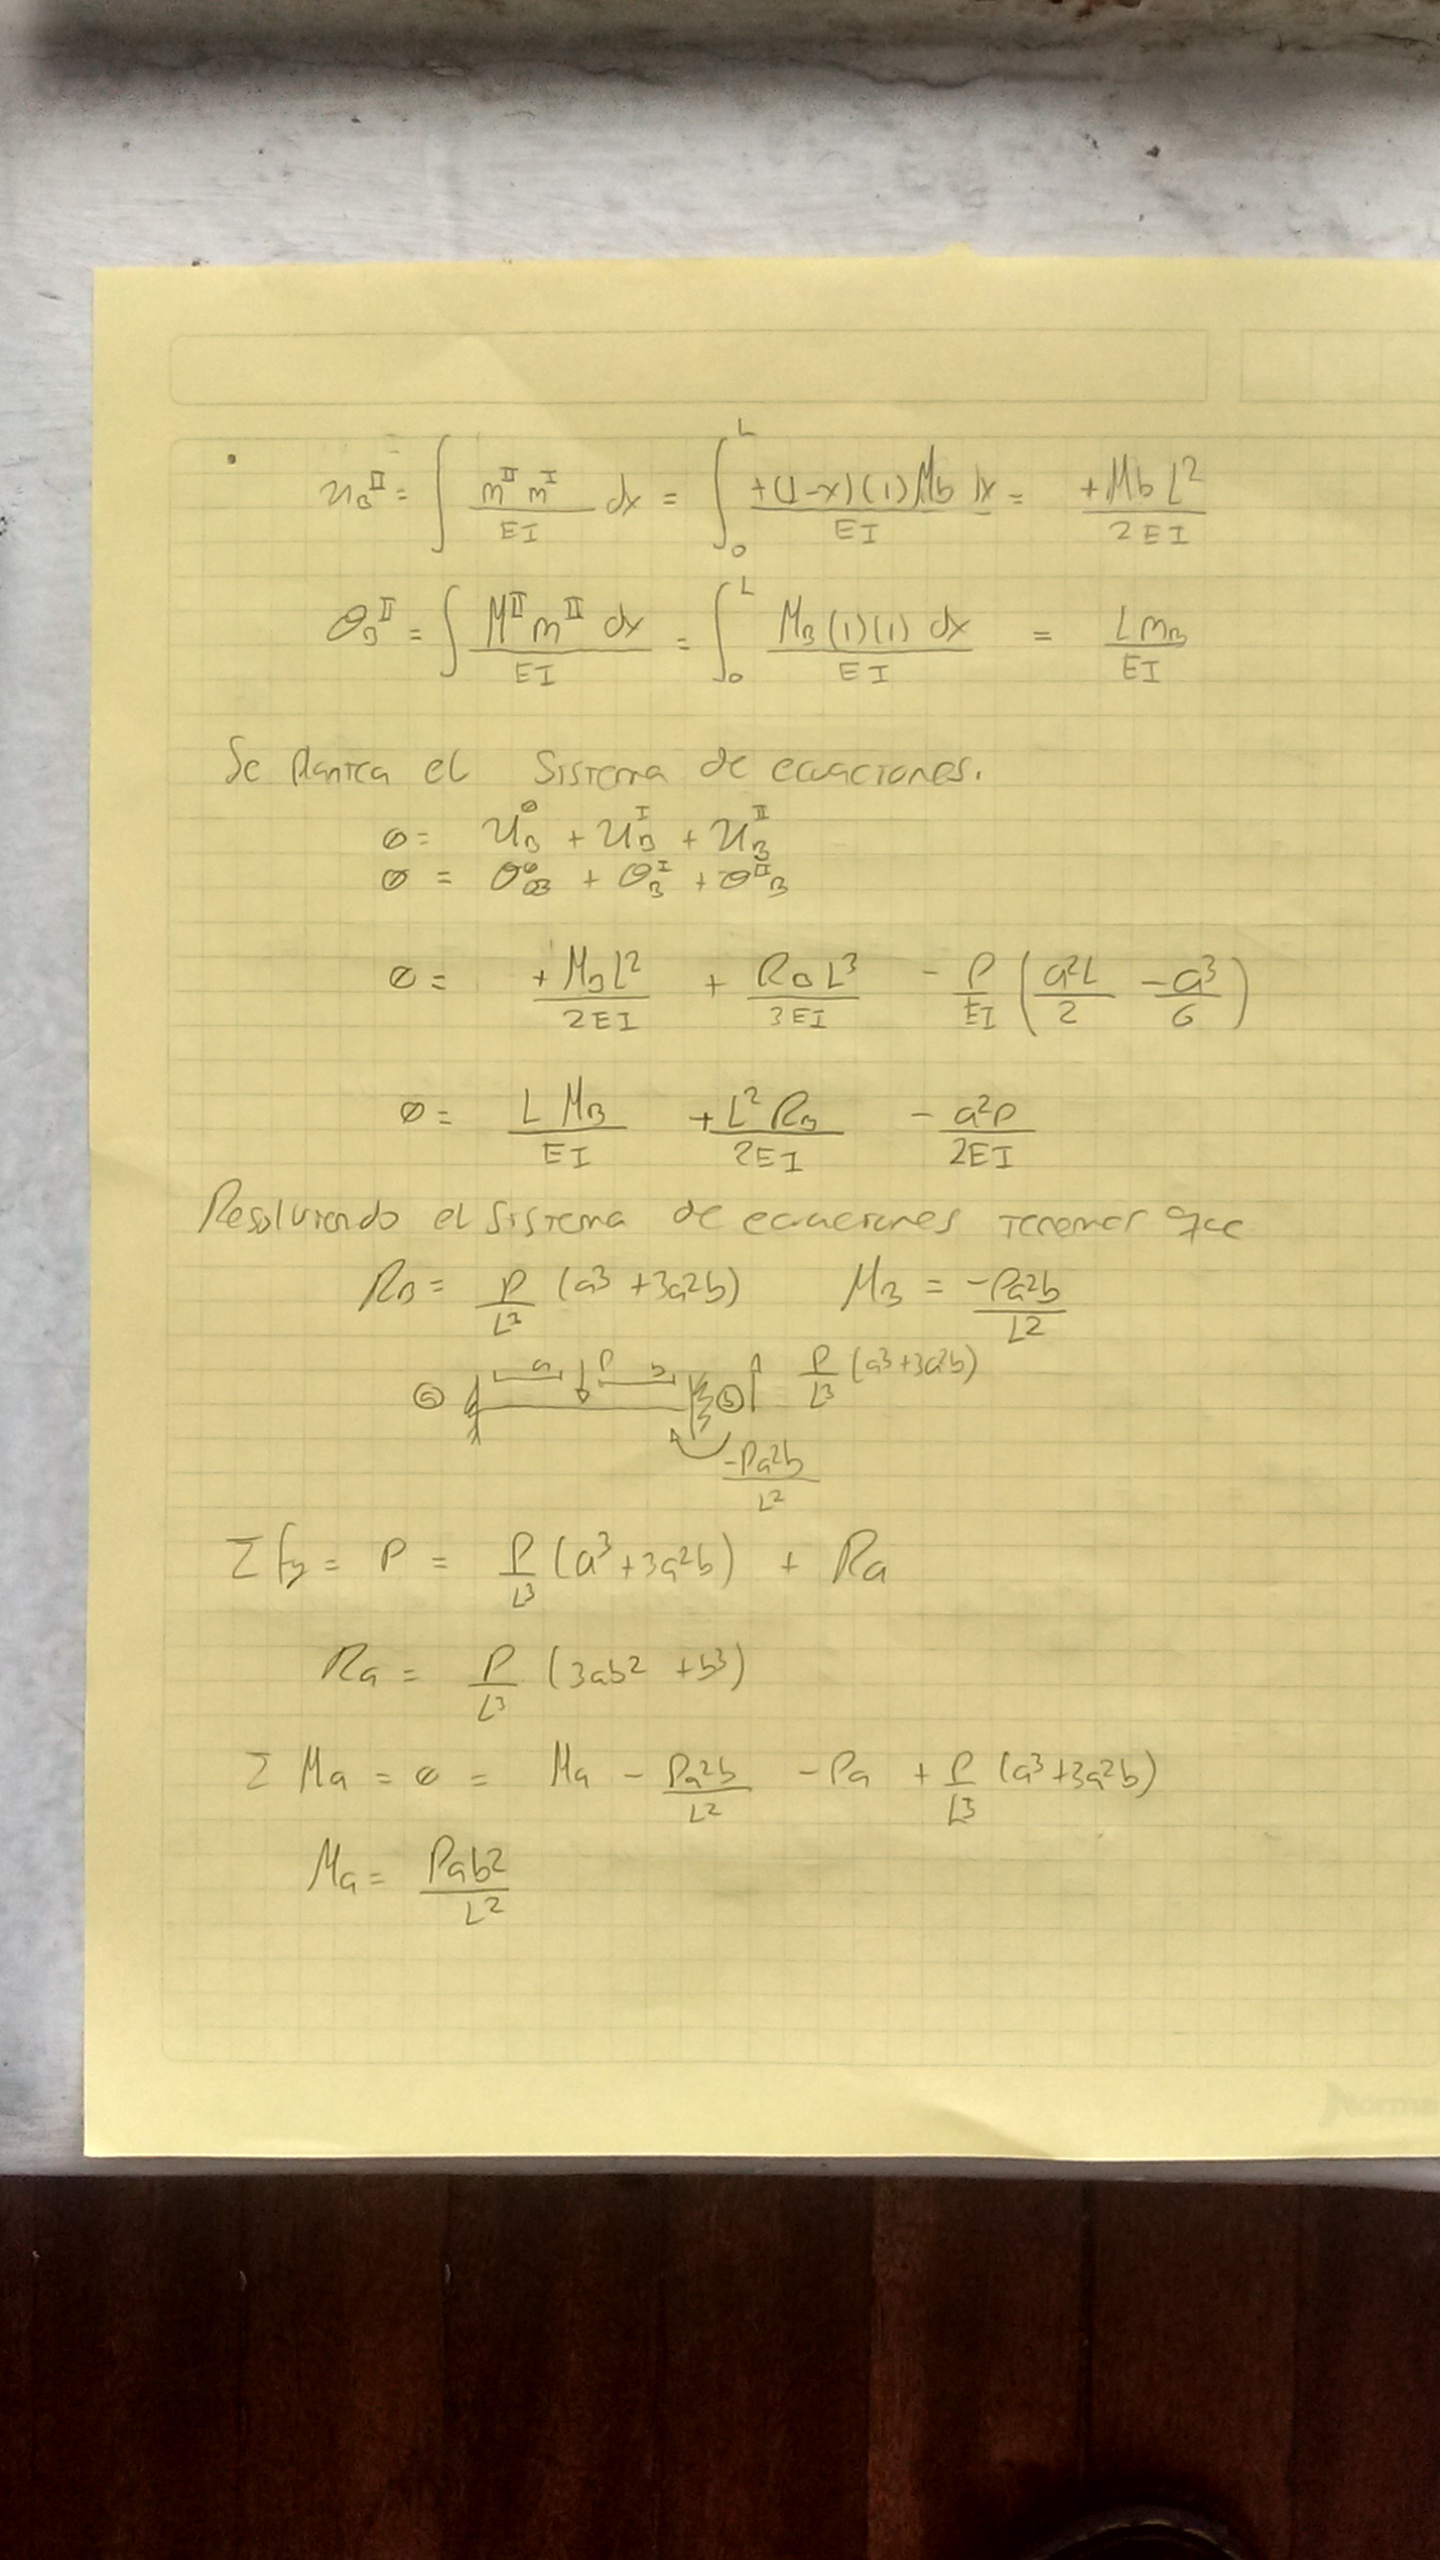 u_B^II = ∫ m^II m^I / EI dx = ∫_0^L +(L-x)(1)Mb dx / EI = +Mb L² / 2EI
θ_B^II = ∫ M^II m^II dx / EI = ∫_0^L M_B(1)(1) dx / EI = L m_B / EI
Se plantea el sistema de ecuaciones.
0 = u_B^0 + u_B^I + u_B^II
0 = θ_B^0 + θ_B^I + θ^II_B
0 = + M_B L² / 2EI + R_B L³ / 3EI - P/EI ( a²L / 2 - a³ / 6 )
0 = L M_B / EI + L² R_B / 2EI - a²P / 2EI
Resolviendo el sistema de ecuaciones tenemos que
R_B = P/L³ (a³ + 3a²b) M_B = -Pa²b / L²
a P b P/L³ (a³+3a²b)
a b
-Pa²b / L²
Σ Fy = P = P/L³ (a³ + 3a²b) + Ra
Ra = P/L³ (3ab² + b³)
Σ Ma = 0 = Ma - Pa²b / L² - Pa + P/L³ (a³+3a²b)
Ma = Pab² / L²
Norma